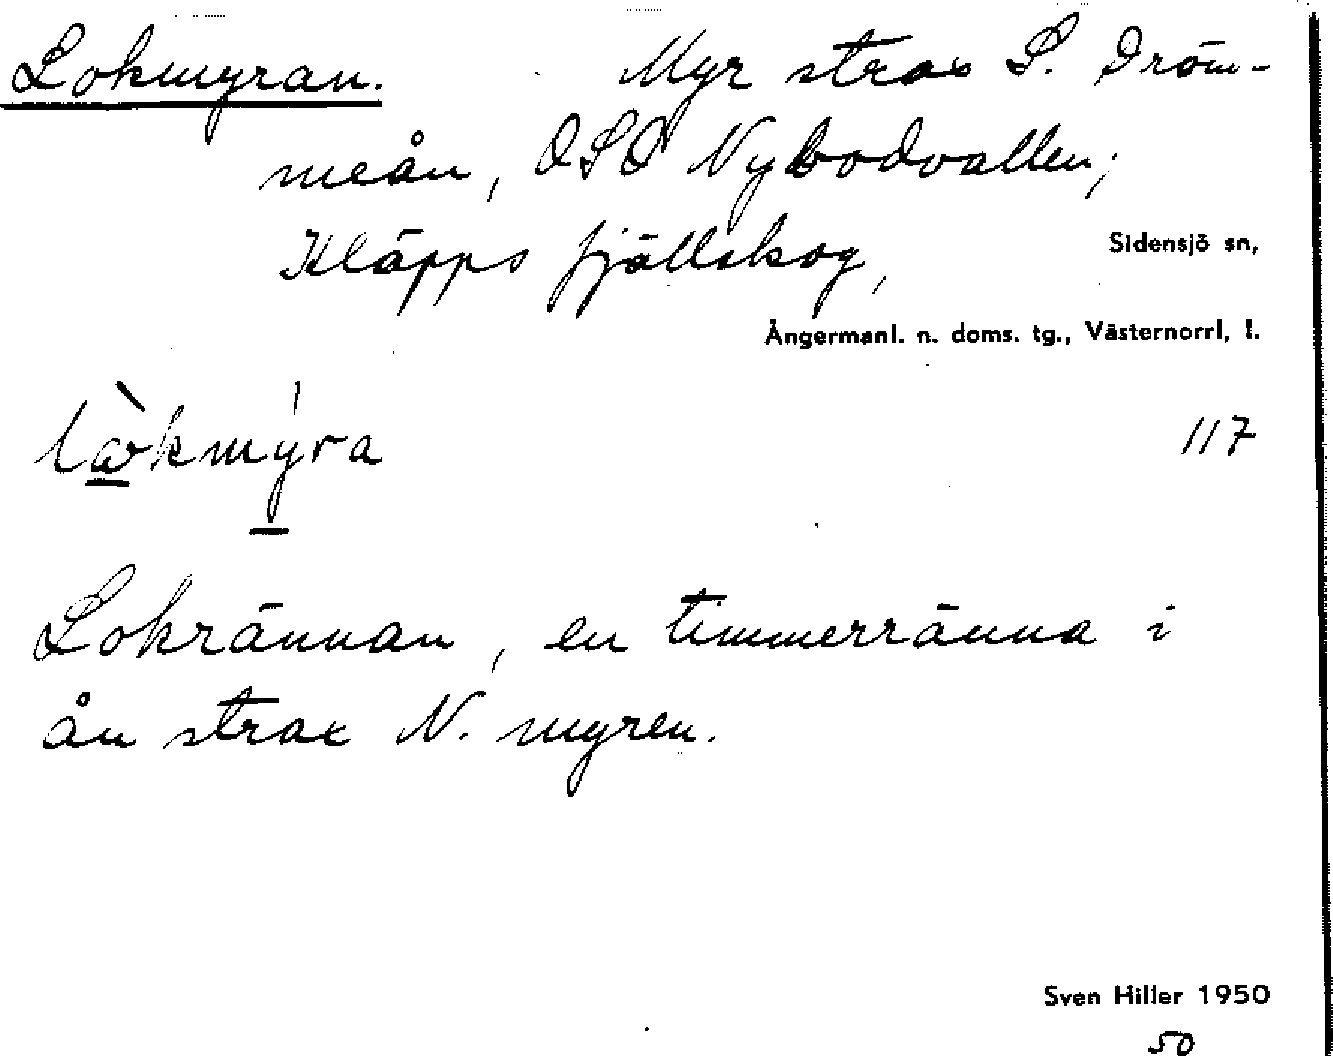 Lokmyran. Myr strax S. Dröm-
meån, OSO Nybodvallen,
Kläpps fjällskog,
Sidensjö sn,
Ångermanl. n. doms. tg., Västernorrl. l.
117
Lokrännan, en timmerränna i
ån strax N. myren.
Sven Hiller 1950
50